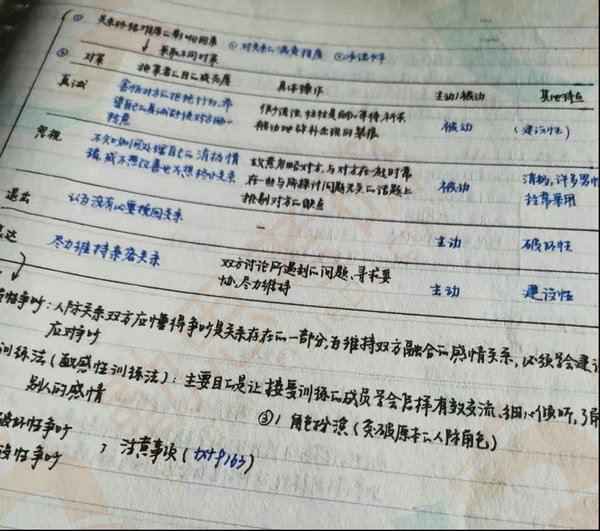 ① 关系终结难度的影响因素
↓ 采取不同对策 ①对关系的满意程度 ②承诺水平
② 对策 施策者的自的或亮度 具体操作 主动/被动 其他特点
真诚 害怕对方的拒绝行为,希 很少说话,往往是耐心等待、祈求, 被动 (建设性)
望自己的真诚能使对方回心 被动地弥补出现的裂痕
转意
忽视 不知如何处理自己的消极情 故意忽略对方,与对方在一起时常 被动 消极,许多男性
绪,或不想改善也不想终止关系 在一些与所探讨问题无关的话题上 经常采用
挑剔对方的缺点
退出 认为没有必要挽回关系 — 主动 破坏性
表达 尽力维持亲密关系 双方讨论所遇到的问题、寻求妥 主动 建设性
协、尽力维持
性争吵:人际关系双方应懂得争吵是关系存在的一部分,为维持双方融合的感情关系,必须学会建设
应对争吵
训练法(敏感性训练法):主要目的是让接受训练的成员学会怎样有效交流、细心倾听,了解
别人的感情 ③) 角色扮演(突破原本的人际角色)
破坏性争吵
设性争吵 } 注意事项(txt p163)